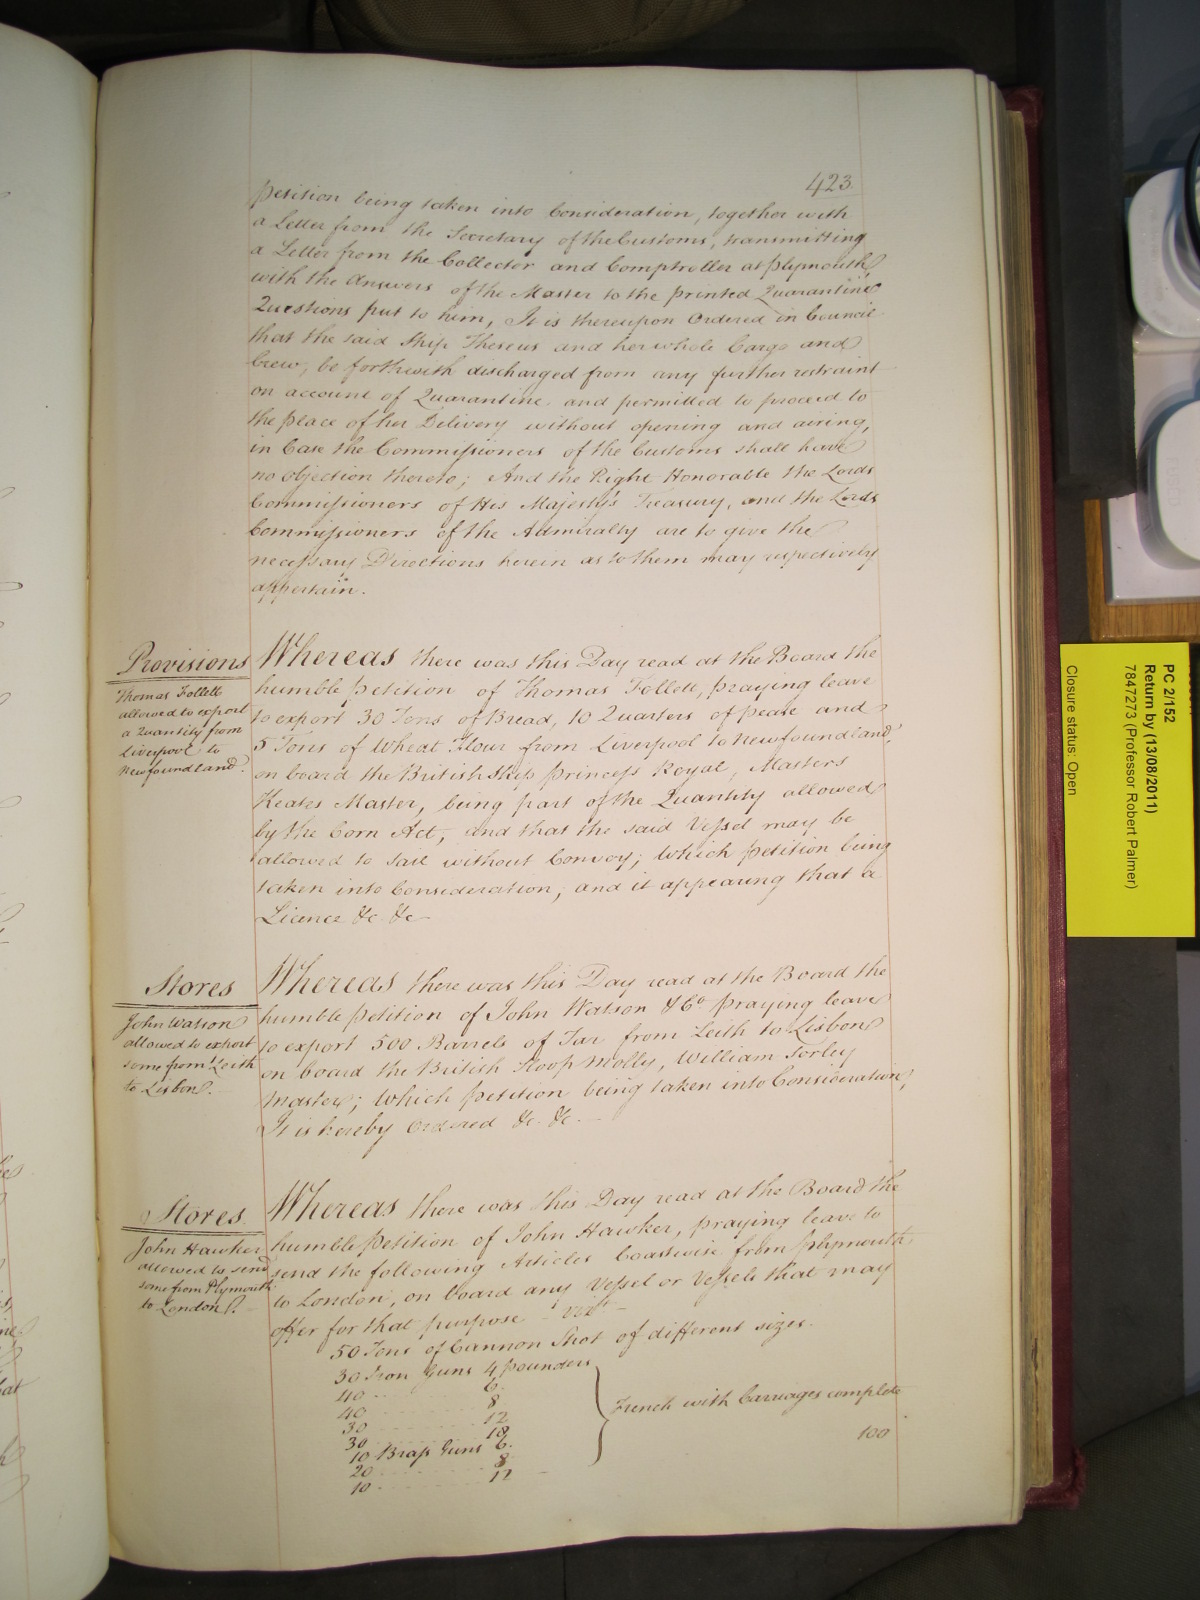 423.
petition being taken into Consideration, together with
a Letter from the Secretary of the Customs, transmitting
a Letter from the Collector and Comptroller at Plymouth,
with the Answers of the Master to the printed Quarantine
Questions put to him, It is thereupon Ordered in Council
that the said Ship Theseus and her whole Cargo and
Crew, be forthwith discharged from any further restraint
on account of Quarantine, and permitted to proceed to
the place of her Delivery without opening and airing,
in Case the Commissioners of the Customs shall have
no objection thereto; And the Right Honorable the Lords
Commissioners of His Majesty's Treasury, and the Lords
Commissioners of the Admiralty are to give the
necessary Directions herein as to them may respectively
appertain.
Provisions
Thomas Follett
allowed to export
a Quantity from
Liverpool to
Newfoundland.
Whereas there was this Day read at the Board the
humble petition of Thomas Follett, praying leave
to export 30 Tons of Bread, 10 Quarters of pease and
5 Tons of Wheat Flour from Liverpool to Newfoundland,
on board the British Ship Princess Royal, Masters
Keates Master, being part of the Quantity allowed
by the Corn Act, and that the said Vessel may be
allowed to sail without Convoy; Which petition being
taken into Consideration, and it appearing that a
Licence &c. &c
Stores
John Watson
allowed to export
some from Leith
to Lisbon.
Whereas there was this Day read at the Board the
humble petition of John Watson & Co. praying leave
to export 500 Barrels of Tar from Leith to Lisbon
on board the British Sloop Molly, William Torley
Master; Which petition being taken into Consideration,
It is hereby Ordered &c. &c.
Stores
John Hawker
allowed to send
some from Plymouth
to London.
Whereas there was this Day read at the Board the
humble petition of John Hawker, praying leave to
send the following Articles Coastwise from Plymouth
to London, on board any Vessel or Vessels that may
offer for that purpose - vizt
50 Tons of Cannon Shot of different sizes.
30 Iron Guns 4 pounders
40 .. 6.
40 .. 8
30 .. 12
30 .. 18
10 Brass Guns 6.
20 .. 8
10 .. 12
French with Carriages complete
100
PC 2/152
Return by (13/08/2011)
7847273 (Professor Robert Palmer)
Closure status: Open